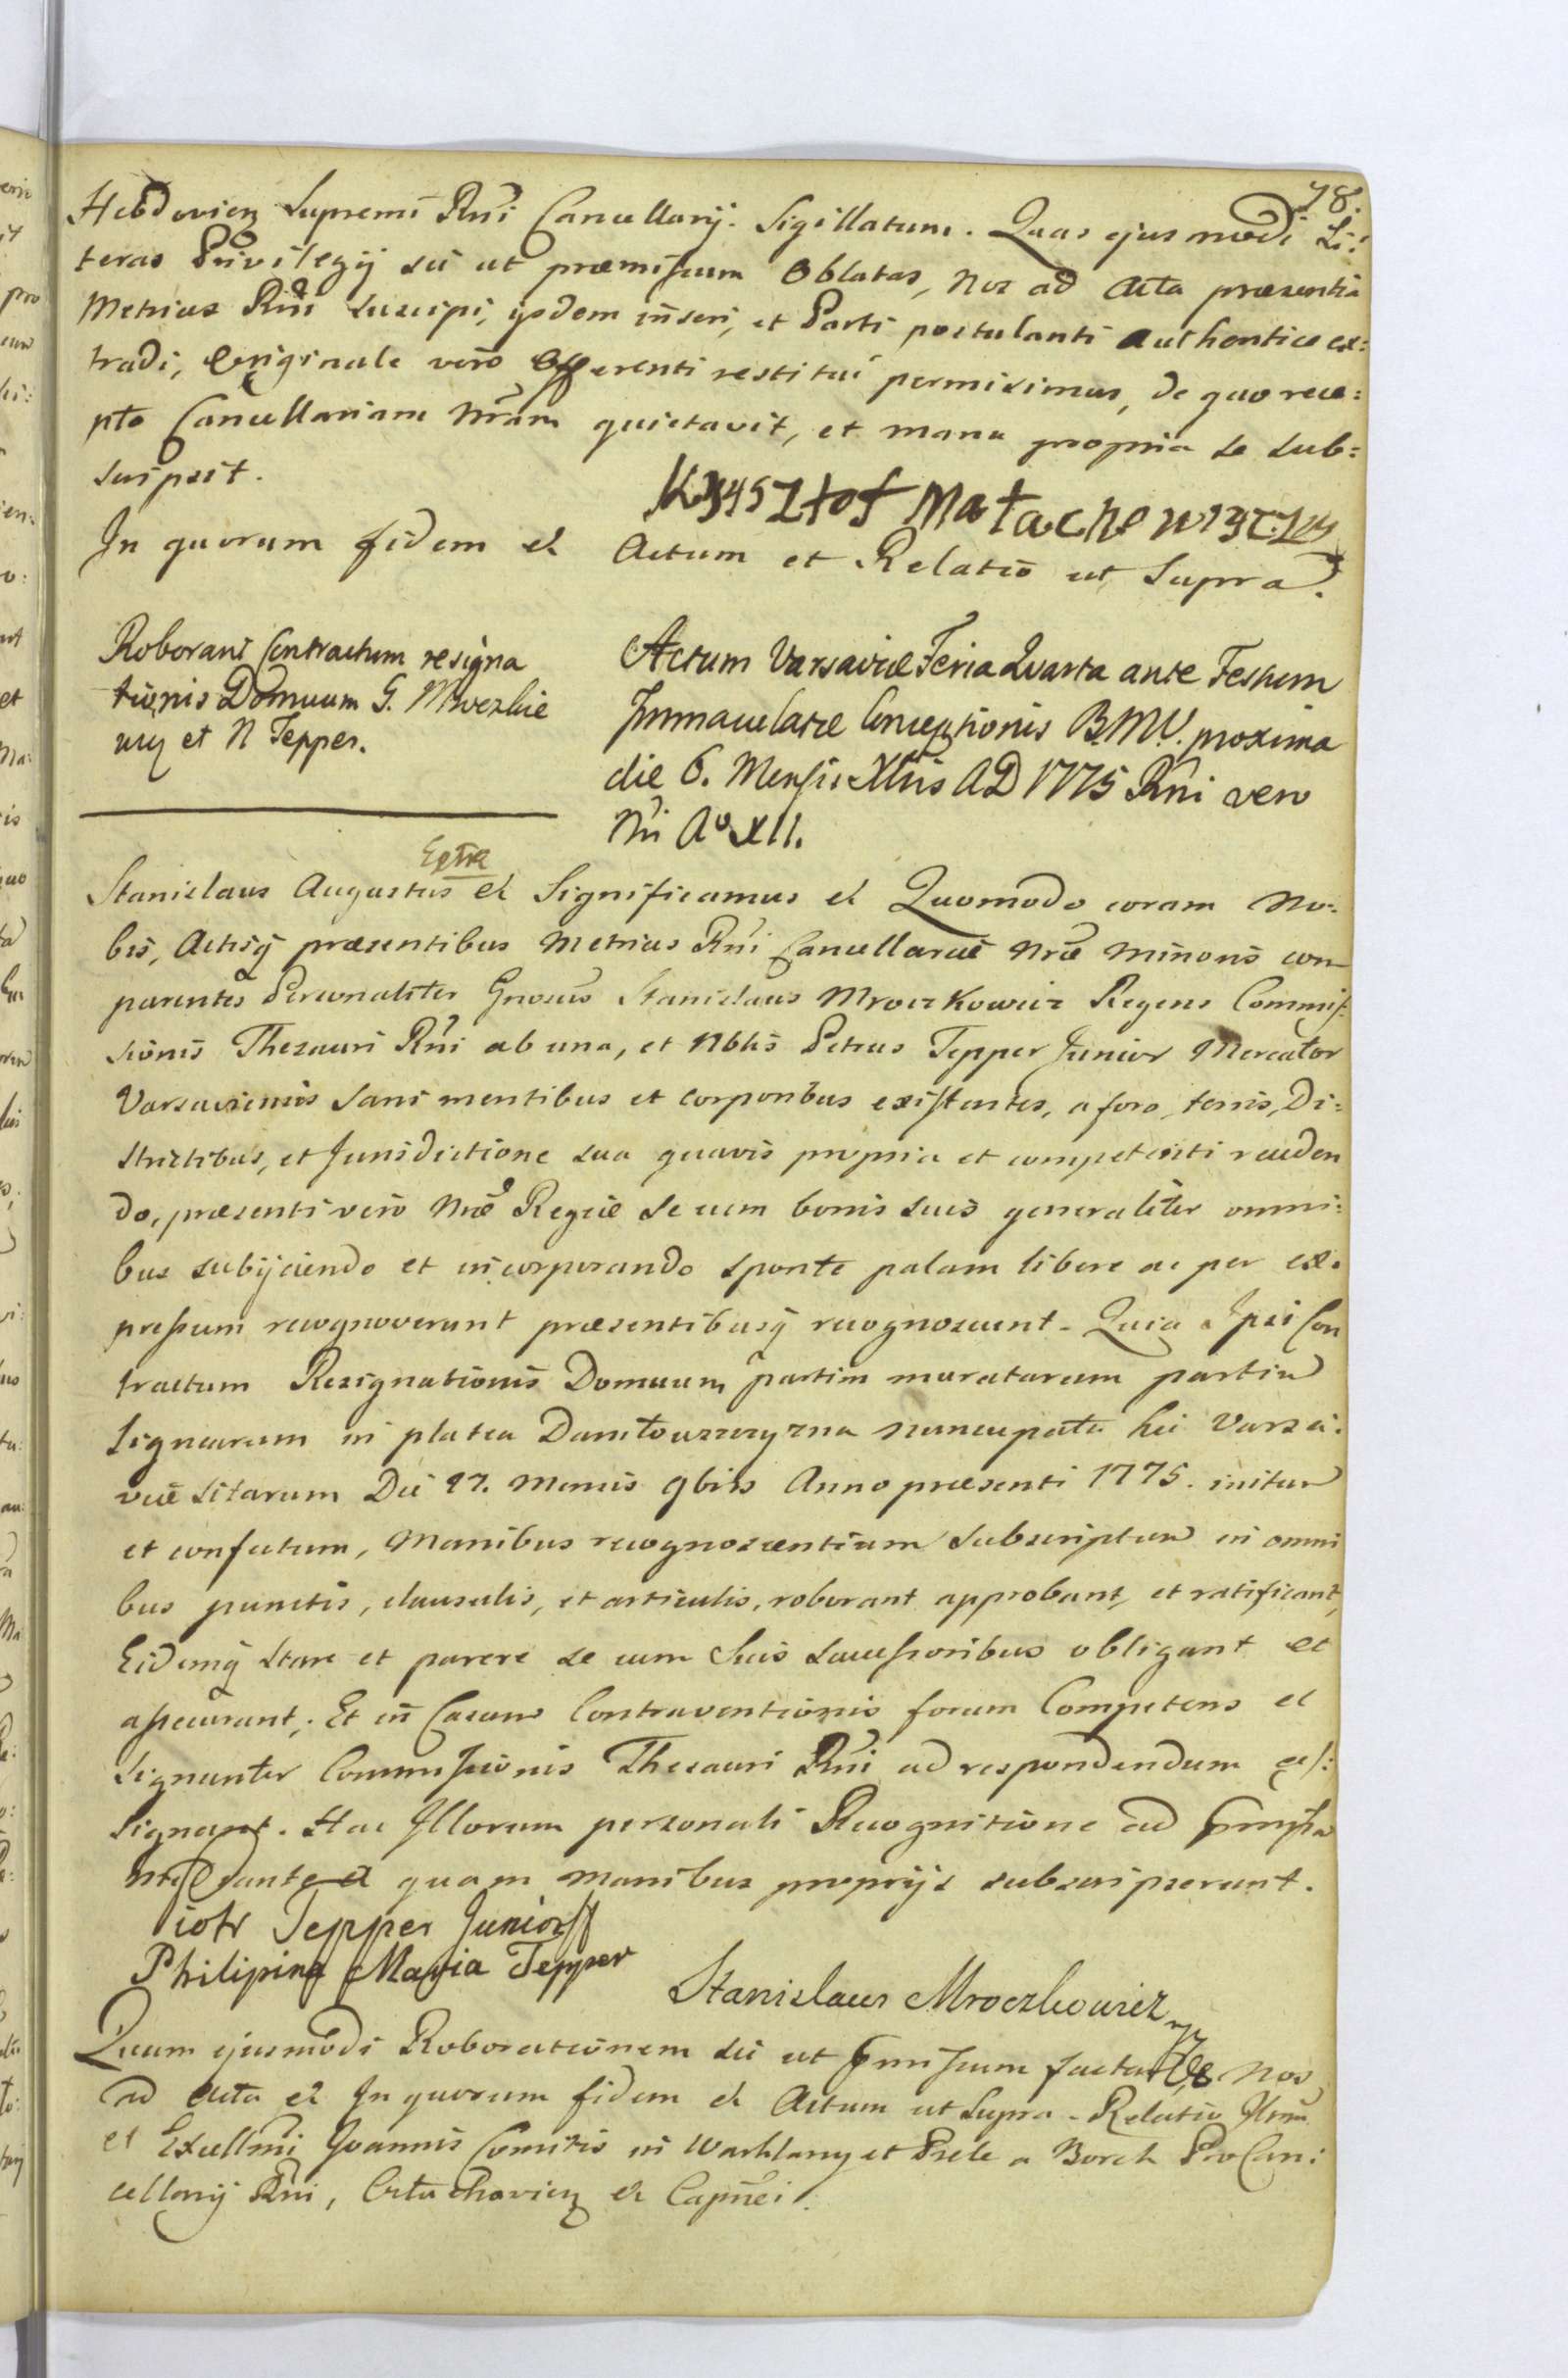 78.
Hebdovien Supremi Rni Cancellarij. Sigillatum. Quas ejusmodi Li:
teras Privilegij sic ut præmissum Oblatas, Nos ad Acta præsentia
Metrices Rni suscipi, ijsdem inseri, et Parti postulanti authentice ex:
tradi, Originale vero Offerenti restitui permisimus, de quo rece:
pto Cancellariam Nram quietavit, et manu propria se sub:
scripsit.
In quorum fidem et Actum et Relatio ut Supra.
Roborant Contractum resigna
tionis Domuum G. Mroczkie
wicz et N Tepper.
Actum Varsaviæ Feria Quarta ante Festum
Immaculatæ Conceptionis B.M.V. proxima
die 6. Mensis Xbris AD 1775 Rni vero
Nri Ao XII.
Extra
Stanislaus Augustus et Significamus et Quomodo coram No:
bis, Actisq præsentibus Metrices Rni Cancellariæ Nræ Minoris com
parentes Personaliter Gnosus Stanislaus Mroczkowicz Regens Commis:
sionis Thesauri Rni ab una, et Nblis Petrus Tepper Junior Mercator
Varsaviensis sani mentibus et corporibus existentes, a foro, terris, Di:
strictibus, et Jurisdictione sua quavis propria et competenti receden
do, præsenti vero Nræ Regiæ se cum bonis suis generaliter omni:
bus subijciendo et incorporando sponte palam libere ac per ex:
pressum recognoverunt præsentibusq recognoscunt. Quia Ipsi Con
tractum Resignationis Domuum partim muratarum partim
lignearum in platea nuncupata hic Varsa:
viæ sitarum Die 27. Mensis 9bris Anno præsenti 1775. initum
et confectum, Manibus recognoscentium subscriptum in omni
bus punctis, clausulis, et articulis, roborant approbant, et ratificant,
Eidemq stare et parere se cum Suis Successoribus obligant et
assecurant; Et in Casum Contraventionis forum Competens et
signanter Commissionis Thesauri Rni ad respondendum as:
signant. Hac Illorum personali Recognitione ad præmissa
quam manibus proprijs subscripserunt.
Piotr Tepper Junior
Philipina Maria Tepper
Stanislaus Mroczkowicz
Quam ejusmodi Roborationem sic ut præmissum factam Nos
ad Acta et In quorum fidem et Actum ut Supra. Relatio Illmi
et Excellmi Joannis Comitis in Warklany et Prele a Borch ProCan:
cellarij Rni, et Capnei.